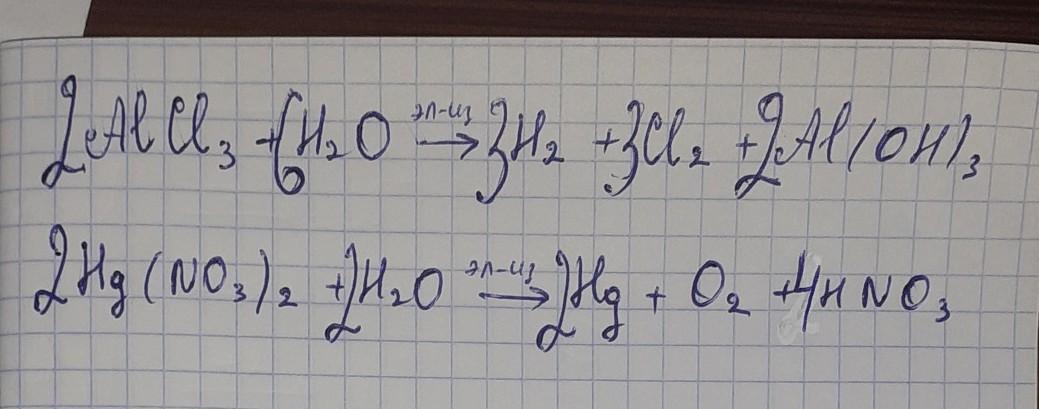 2AlCl₃ + 6H₂O эл-из → 3H₂ + 3Cl₂ + 2Al(OH)₃
2Hg(NO₃)₂ + 2H₂O эл-из → 2Hg + O₂ + 4HNO₃